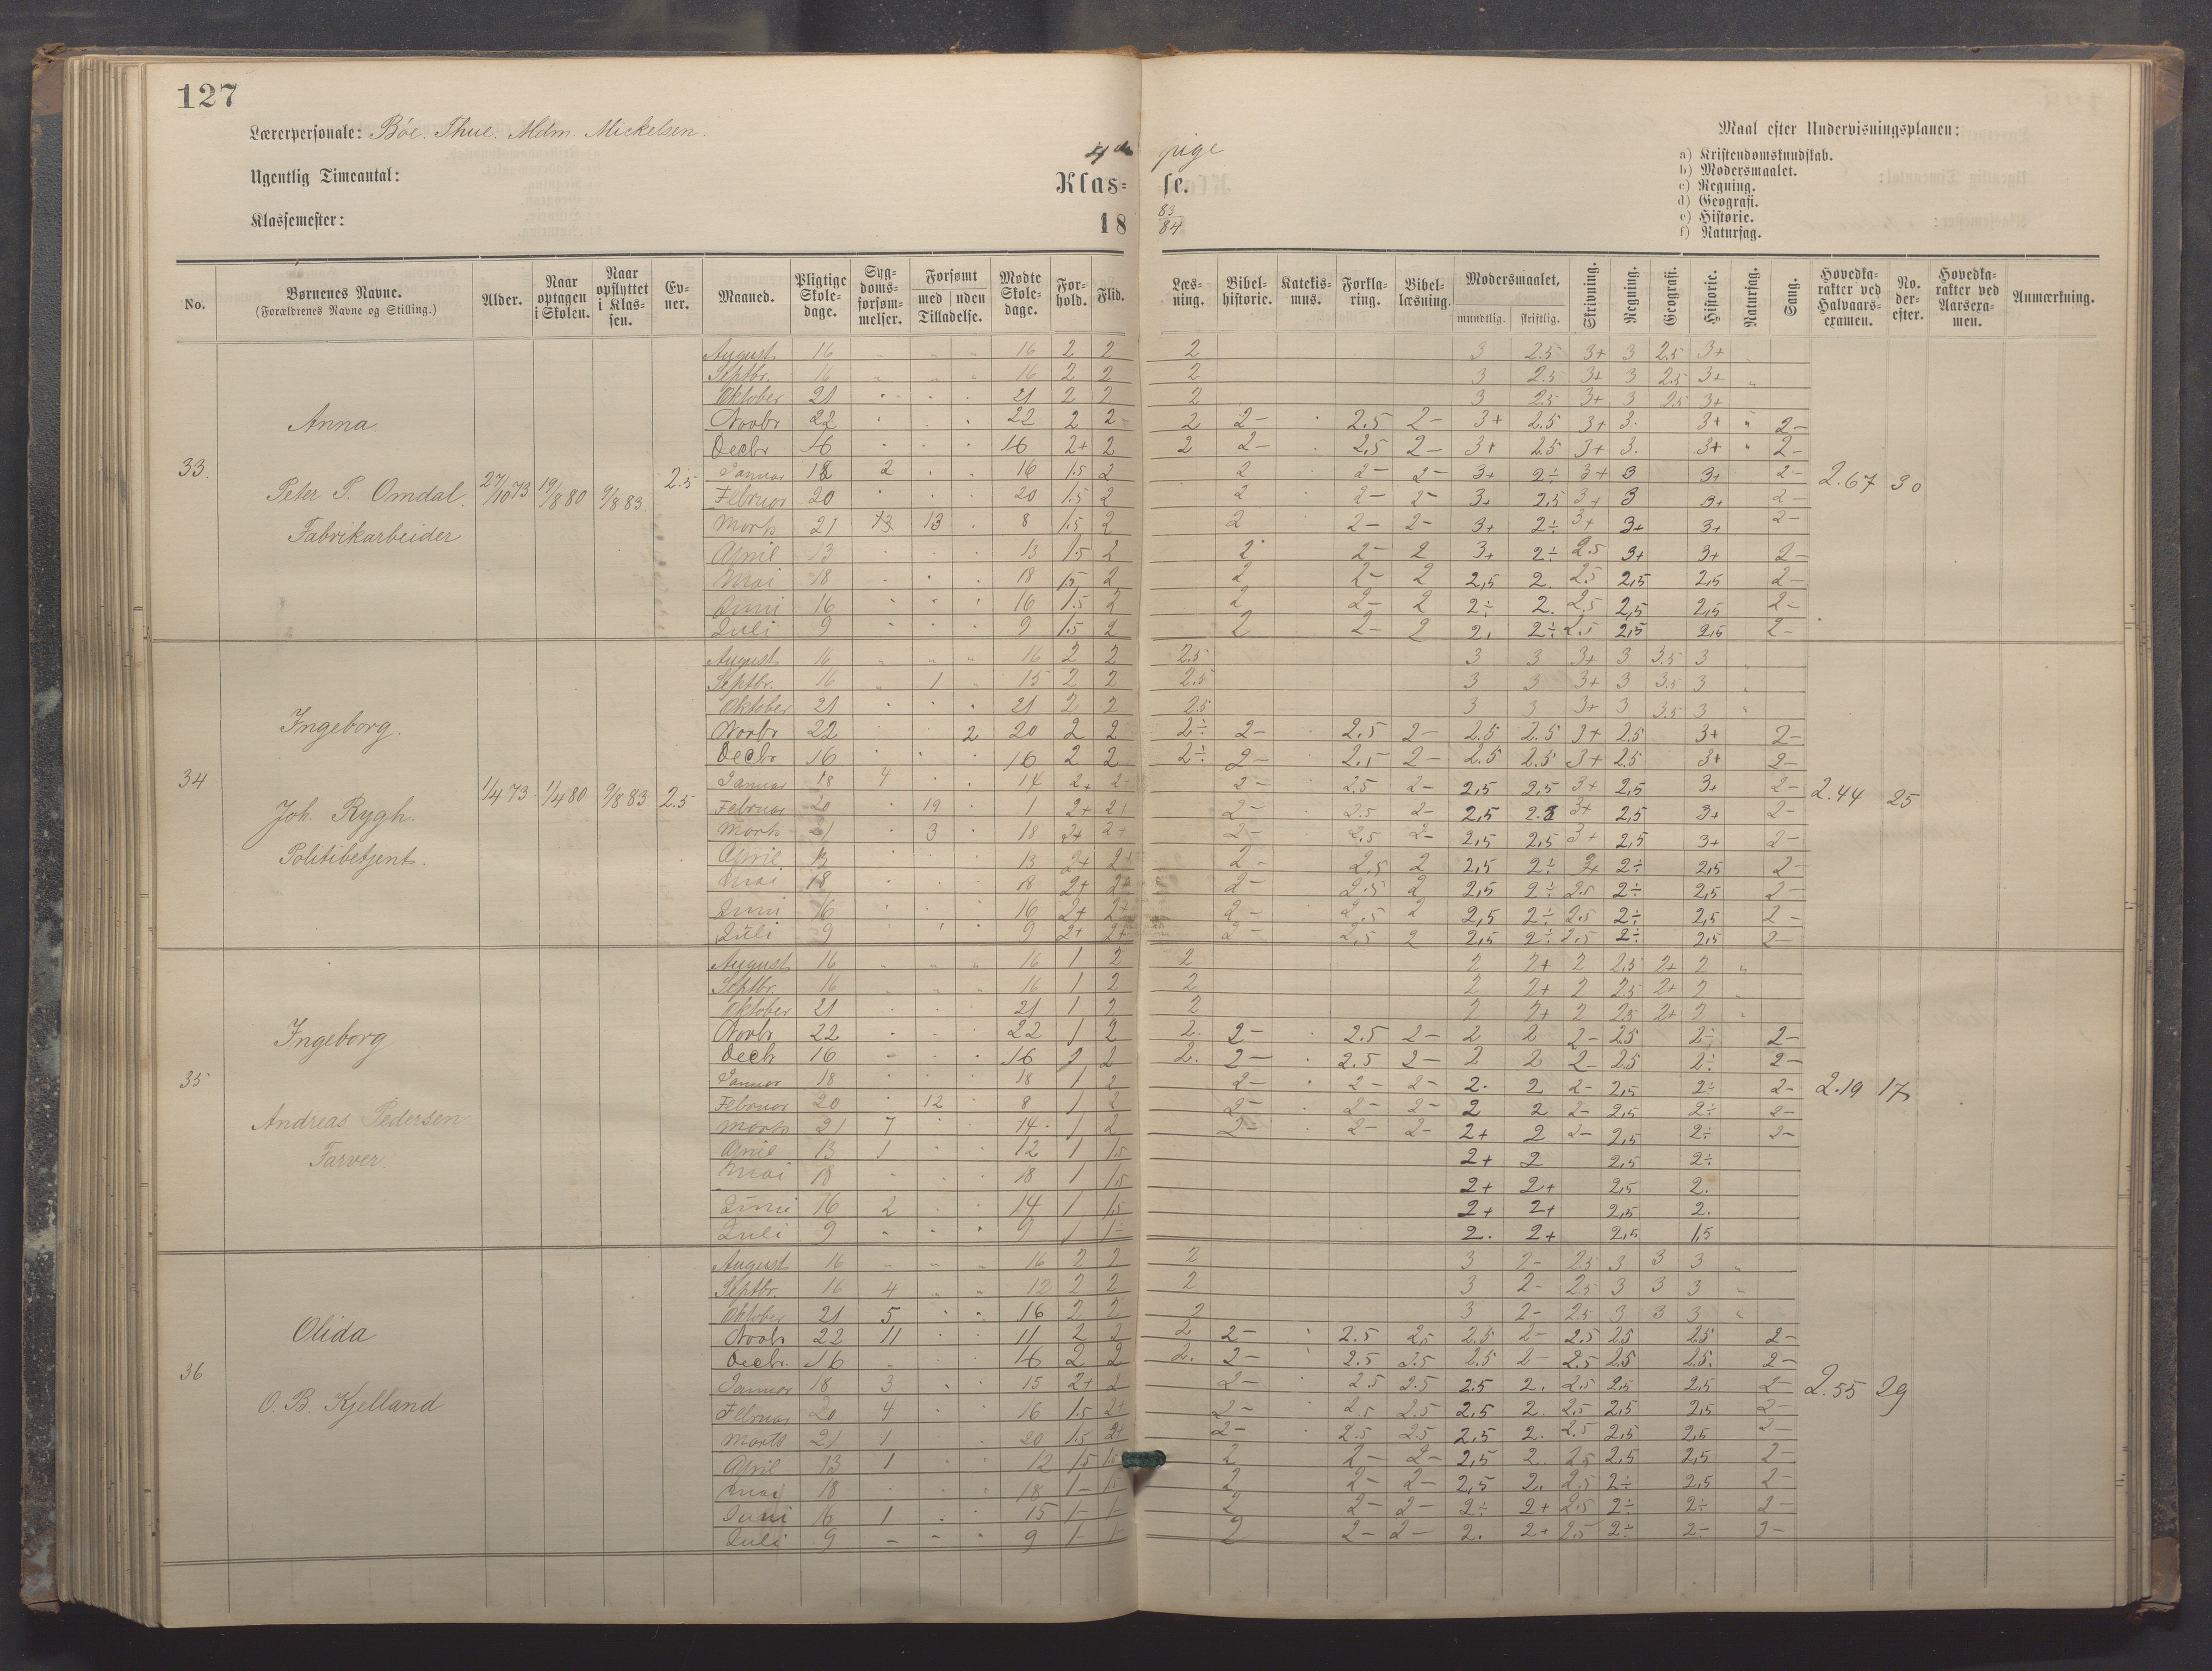 127
Lærerpersonale: Bóe. Thue. Mdm. Mickelsen.
Ugentlig Timeantal:
Klassemester:
4de pige
Klas= se.
18 83/84
Maal efter Undervisningsplanen:
a) Kristendomskundskab.
b) Modersmaalet.
c) Regning.
d) Geografi.
e) Historie.
f) Naturfag.
No. Børnenes Navne. (Forældrenes Navne og Stilling.) Alder. Naar optagen i Skolen. Naar opflyttet i Klassen. Evner. Maaned. Pligtige Skoledage. Sygdomsforsømmelser. Forsømt med uden Tilladelse. Mødte Skoledage. Forhold. Flid. Læsning. Bibelhistorie. Katekismus. Forklaring. Bibellæsning. Modersmaalet, mundtlig. skriftlig. Skrivning. Regning. Geografi. Historie. Naturfag. Sang. Hovedkarakter ved Halvaarsexamen. No. derefter. Hovedkarakter ved Aarsexamen. Anmærkning.
33. Anna. Peter P. Omdal. Fabrikarbeider 27/10 73 19/8 80 9/8 83. 2.5 2.67 30
August 16 " " " 16 2 2 2 3 2.5 3+ 3 2.5 3+ "
Septbr. 16 " " " 16 2 2 2 3 2.5 3+ 3 2.5 3+ "
Oktober 21 . . . 21 2 2 2 3 2.5 3+ 3 2.5 3+
Novbr 22 . . . 22 2 2- 2 2- . 2.5 2- 3+ 2.5 3+ 3. 3+ " 2-
Decbr 16 . . . 16 2+ 2 2 2- . 2.5 2- 3+ 2.5 3+ 3. 3+ " 2-
Januar 18 2 . . 16 1.5 2 2 2- 2- 3+ 2÷ 3+ 3 3+ 2-
Februar 20 . . . 20 1.5 2 2 2- 2- 3+ 2,5 3+ 3 3+ 2-
Marts 21 13 13 . 8 1.5 2 2 2- 2- 3+ 2÷ 3+ 3+ 3+ 2-
April 13 . . . 13 1.5 2 2 2- 2 3+ 2÷ 2.5 3+ 3+ 2-
Mai 18 . . . 18 1.5 2 2 2- 2 2,5 2. 2.5 2,5 2,5 2-
Juni 16 . . . 16 1.5 2 2 2- 2 2÷ 2. 2.5 2,5 2,5 2-
Juli 9 . . . 9 1.5 2 2 2- 2 2. 2÷ 2.5 2,5 2,5 2-
34 Ingeborg. Joh. Rygh. Politibetjent. 1/4 73. 1/4 80 9/8 83. 2.5 2.44 25
August 16 " " " 16 2 2 2.5 3 3 3+ 3 3.5 3 "
Septbr. 16 " 1 15 2 2 2.5 3 3 3+ 3 3.5 3 "
Oktober 21 . . . 21 2 2 2.5 3 3 3+ 3 3.5 3 "
Novbr 22 . . 2 20 2 2 2÷ 2- . 2.5 2- 2.5 2.5 3+ 2.5 3+ 2-
Decbr 16 . . . 16 2 2 2÷ 2- . 2.5 2- 2.5 2.5 3+ 2.5 3+ 2-
Januar 18 4 . . 14 2+ 2+ 2- 2.5 2- 2,5 2,5 3+ 2,5 3+ 2-
Februar 20 . 19 . 1 2+ 2+ 2- 2.5 2- 2,5 3+ 2,5 3+ 2-
Marts 21 . 3 . 18 2+ 2+ 2- 2.5 2- 2,5 2,5 3+ 2,5 3+ 2-
April 13 . . . 13 2+ 2+ 2- 2.5 2 2,5 2÷ 3+ 2÷ 2,5 2-
Mai 18 . . . 18 2+ 2+ 2- 2.5 2 2,5 2÷ 2.5 2÷ 2,5 2-
Juni 16 . . . 16 2+ 2+ 2- 2.5 2 2,5 2÷ 2.5 2÷ 2,5 2-
Juli 9 . . . 9 2+ 2+ 2- 2,5 2 2,5 2÷ 2,5 2÷ 2,5 2-
35 Ingeborg Andreas Pedersen Farver. 2.19 17
August 16 " " " 16 1 2 2 2 2+ 2 2.5 2+ 2 "
Septbr. 16 " " " 16 1 2 2 2 2+ 2 2.5 2+ 2 "
Oktober 21 . . . 21 1 2 2 2 2+ 2 2.5 2+ 2 "
Novbr 22 . . 22 1 2 2. 2- 2.5 2- 2 2 2- 2.5 2÷ 2-
Decb 16 . . . 16 1 2 2. 2- . 2.5 2- 2 2 2- 2.5 2÷ 2-
Januar 18 . . . 18 1 2 2- . 2- 2- 2. 2 2- 2,5 2÷ 2-
Februar 20 . 12 . 8 1 2 2- . 2- 2- 2 2 2- 2,5 2÷ 2-
Marts 21 7 . . 14 1 2 2- . 2- 2- 2+ 2 2- 2,5 2÷ 2-
April 13 1 . . 12 1 1.5 2+ 2 2,5 2÷
Mai 18 . . . 18 1 1,5 2+ 2+ 2,5 2.
Juni 16 2 . . 14 1 1,5 2+ 2+ 2,5 2.
Juli 9 . . . 9 1 1÷ 2. 2+ 2,5 1,5
36 Olida O. B. Kjelland 2.55 29
August 16 " " " 16 2 2 2 3 2- 2.5 3 3 3 "
Septbr. 16 4 " " 12 2 2 2 3 2- 2.5 3 3 3 "
Oktober 21 5 . . 16 2 2 2 3 2- 2.5 3 3 3 "
Novbr 22 11 . . 11 2 2 2 2- . 2.5 2.5 2.5 2- 2.5 2.5 2.5 2-
Decbr. 16 . . . 16 2 2 2. 2- . 2.5 2.5 2.5 2- 2.5 2.5 2.5. 2-
Januar 18 3 . . 15 2+ 2 2- . 2.5 2.5 2.5 2. 2.5 2,5 2,5 2-
Februar 20 4 . . 16 1.5 2+ 2- . 2.5 2.5 2,5 2. 2,5 2,5 2,5 2-
Marts 21 1 . . 20 1.5 2+ 2- . 2.5 2.5 2,5 2. 2.5 2,5 2,5 2-
April 13 1 . . 12 1.5 1.5 2 2- 2- 2,5 2. 2.5 2,5 2,5 2-
Mai 18 . . . 18 1- 1.5 2 2- 2- 2,5 2. 2.5 2÷ 2,5 2-
Juni 16 1 . . 15 1- 1- 2 2- 2- 2÷ 2+ 2.5 2÷ 2÷ 2-
Juli 9 - - . 9 1- 1- 2 2- 2- 2. 2+ 2.5 2÷ 2- 2-